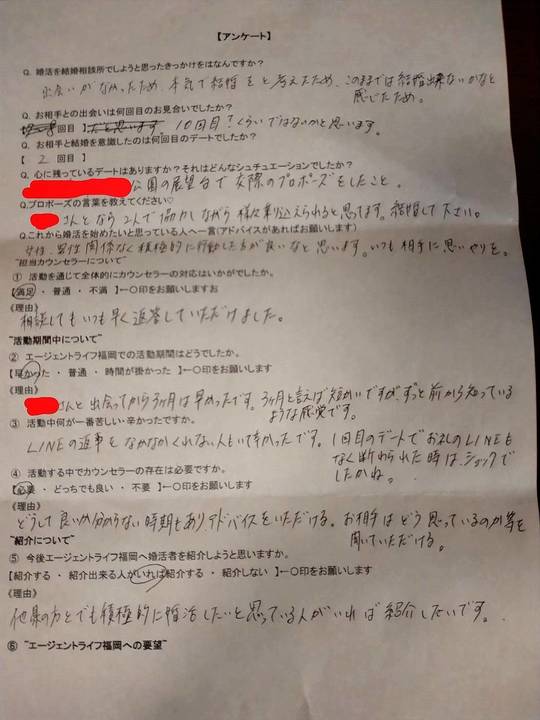 【アンケート】
Q. 婚活を結婚相談所でしようと思ったきっかけをはなんですか?
出会いがなかったため、本気で結婚をと考えたため、このままでは結婚出来ないかなと
感じたため。
Q. お相手との出会いは何回目のお見合いでしたか?
回目】 だと思います。 10回目?くらいではないかと思います。
Q. お相手と結婚を意識したのは何回目のデートでしたか?
【 2 回目】
Q. 心に残っているデートはありますか?それはどんなシュチュエーションでしたか?
公園の展望台で交際のプロポーズをしたこと。
Q.プロポーズの言葉を教えてください♡
さんとなら2人で協力しながら様々乗り越えられると思ってます。結婚して下さい。
Q.これから婚活を始めたいと思っている人へ一言(アドバイスがあればお願いします)
女性、男性関係なく積極的に行動した方が良いなと思います。いつも相手に思いやりを。
"担当カウンセラーについて"
① 活動を通じて全体的にカウンセラーの対応はいかがでしたか。
【満足 ・ 普通 ・ 不満 】←〇印をお願いしますお
《理由》
相談してもいつも早く返答していただけました。
"活動期間中について"
② エージェントライフ福岡での活動期間はどうでしたか。
【早かった ・ 普通 ・ 時間が掛かった 】←〇印をお願いします
《理由》
さんと出会ってから3ヶ月は早かったです。3ヶ月と言えば短かいですが、ずっと前から知っている
ような感覚です。
③ 活動中何が一番苦しい・辛かったですか。
LINEの返事をなかなかくれない人もいて辛かったです。1回目のデートでお礼のLINEも
なく断わられた時は、ショックで
したかね。
④ 活動する中でカウンセラーの存在は必要ですか。
【必要 ・ どっちでも良い ・ 不要 】←〇印をお願いします
《理由》
どうして良いか分からない時期もありアドバイスをいただける。お相手はどう思っているのか等を
聞いていただける。
"紹介について"
⑤ 今後エージェントライフ福岡へ婚活者を紹介しようと思いますか。
【紹介する ・ 紹介出来る人がいれば紹介する ・ 紹介しない 】←〇印をお願いします
《理由》
他県の方とでも積極的に婚活したいと思っている人がいれば紹介したいです。
⑥ "エージェントライフ福岡への要望"